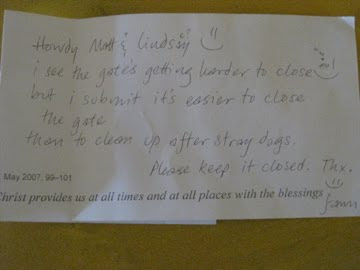 Howdy Matt & Lindsay
i see the gate's getting harder to close
but i submit it's easier to close
the gate
than to clean up after stray dogs.
Please keep it closed. Thx.
May 2007. 99–101
Christ provides us at all times and at all places with the blessings
fawn